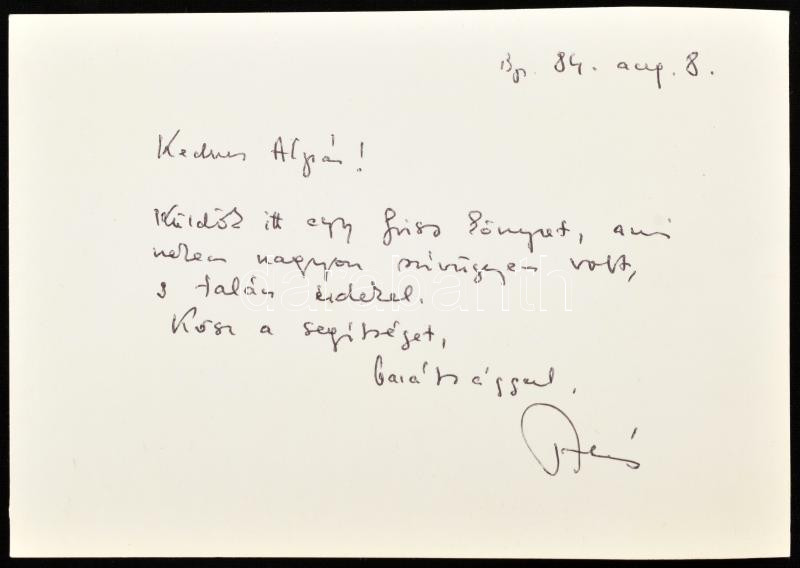 Bp. 84. aug. 8.
Kedves Alpár!
Küldök itt egy friss könyvet, ami
nekem nagyon szívügyem volt,
s talán érdekel.
Kösz a segítséget,
barátsággal,
darabanth